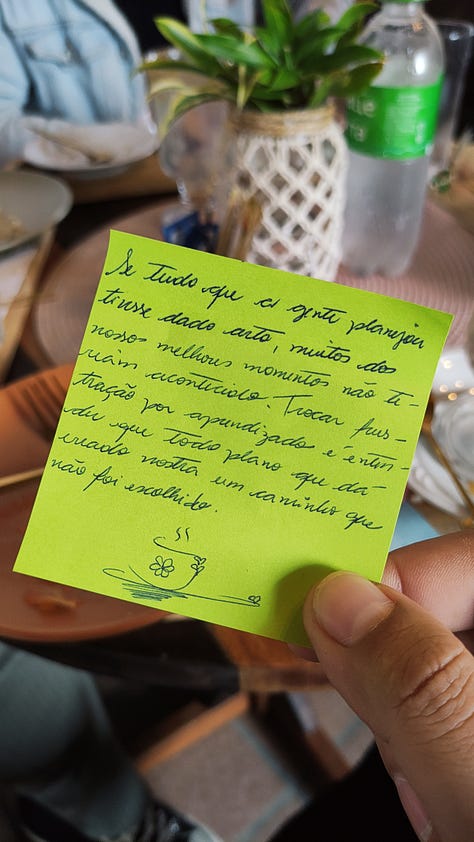 Se tudo que a gente planejou
tivesse dado certo, muitos dos
nossos melhores momentos não ti-
riam acontecido. Trocar frus-
tração por aprendizado é enten-
der que todo plano que dá
errado mostra um caminho que
não foi escolhido.